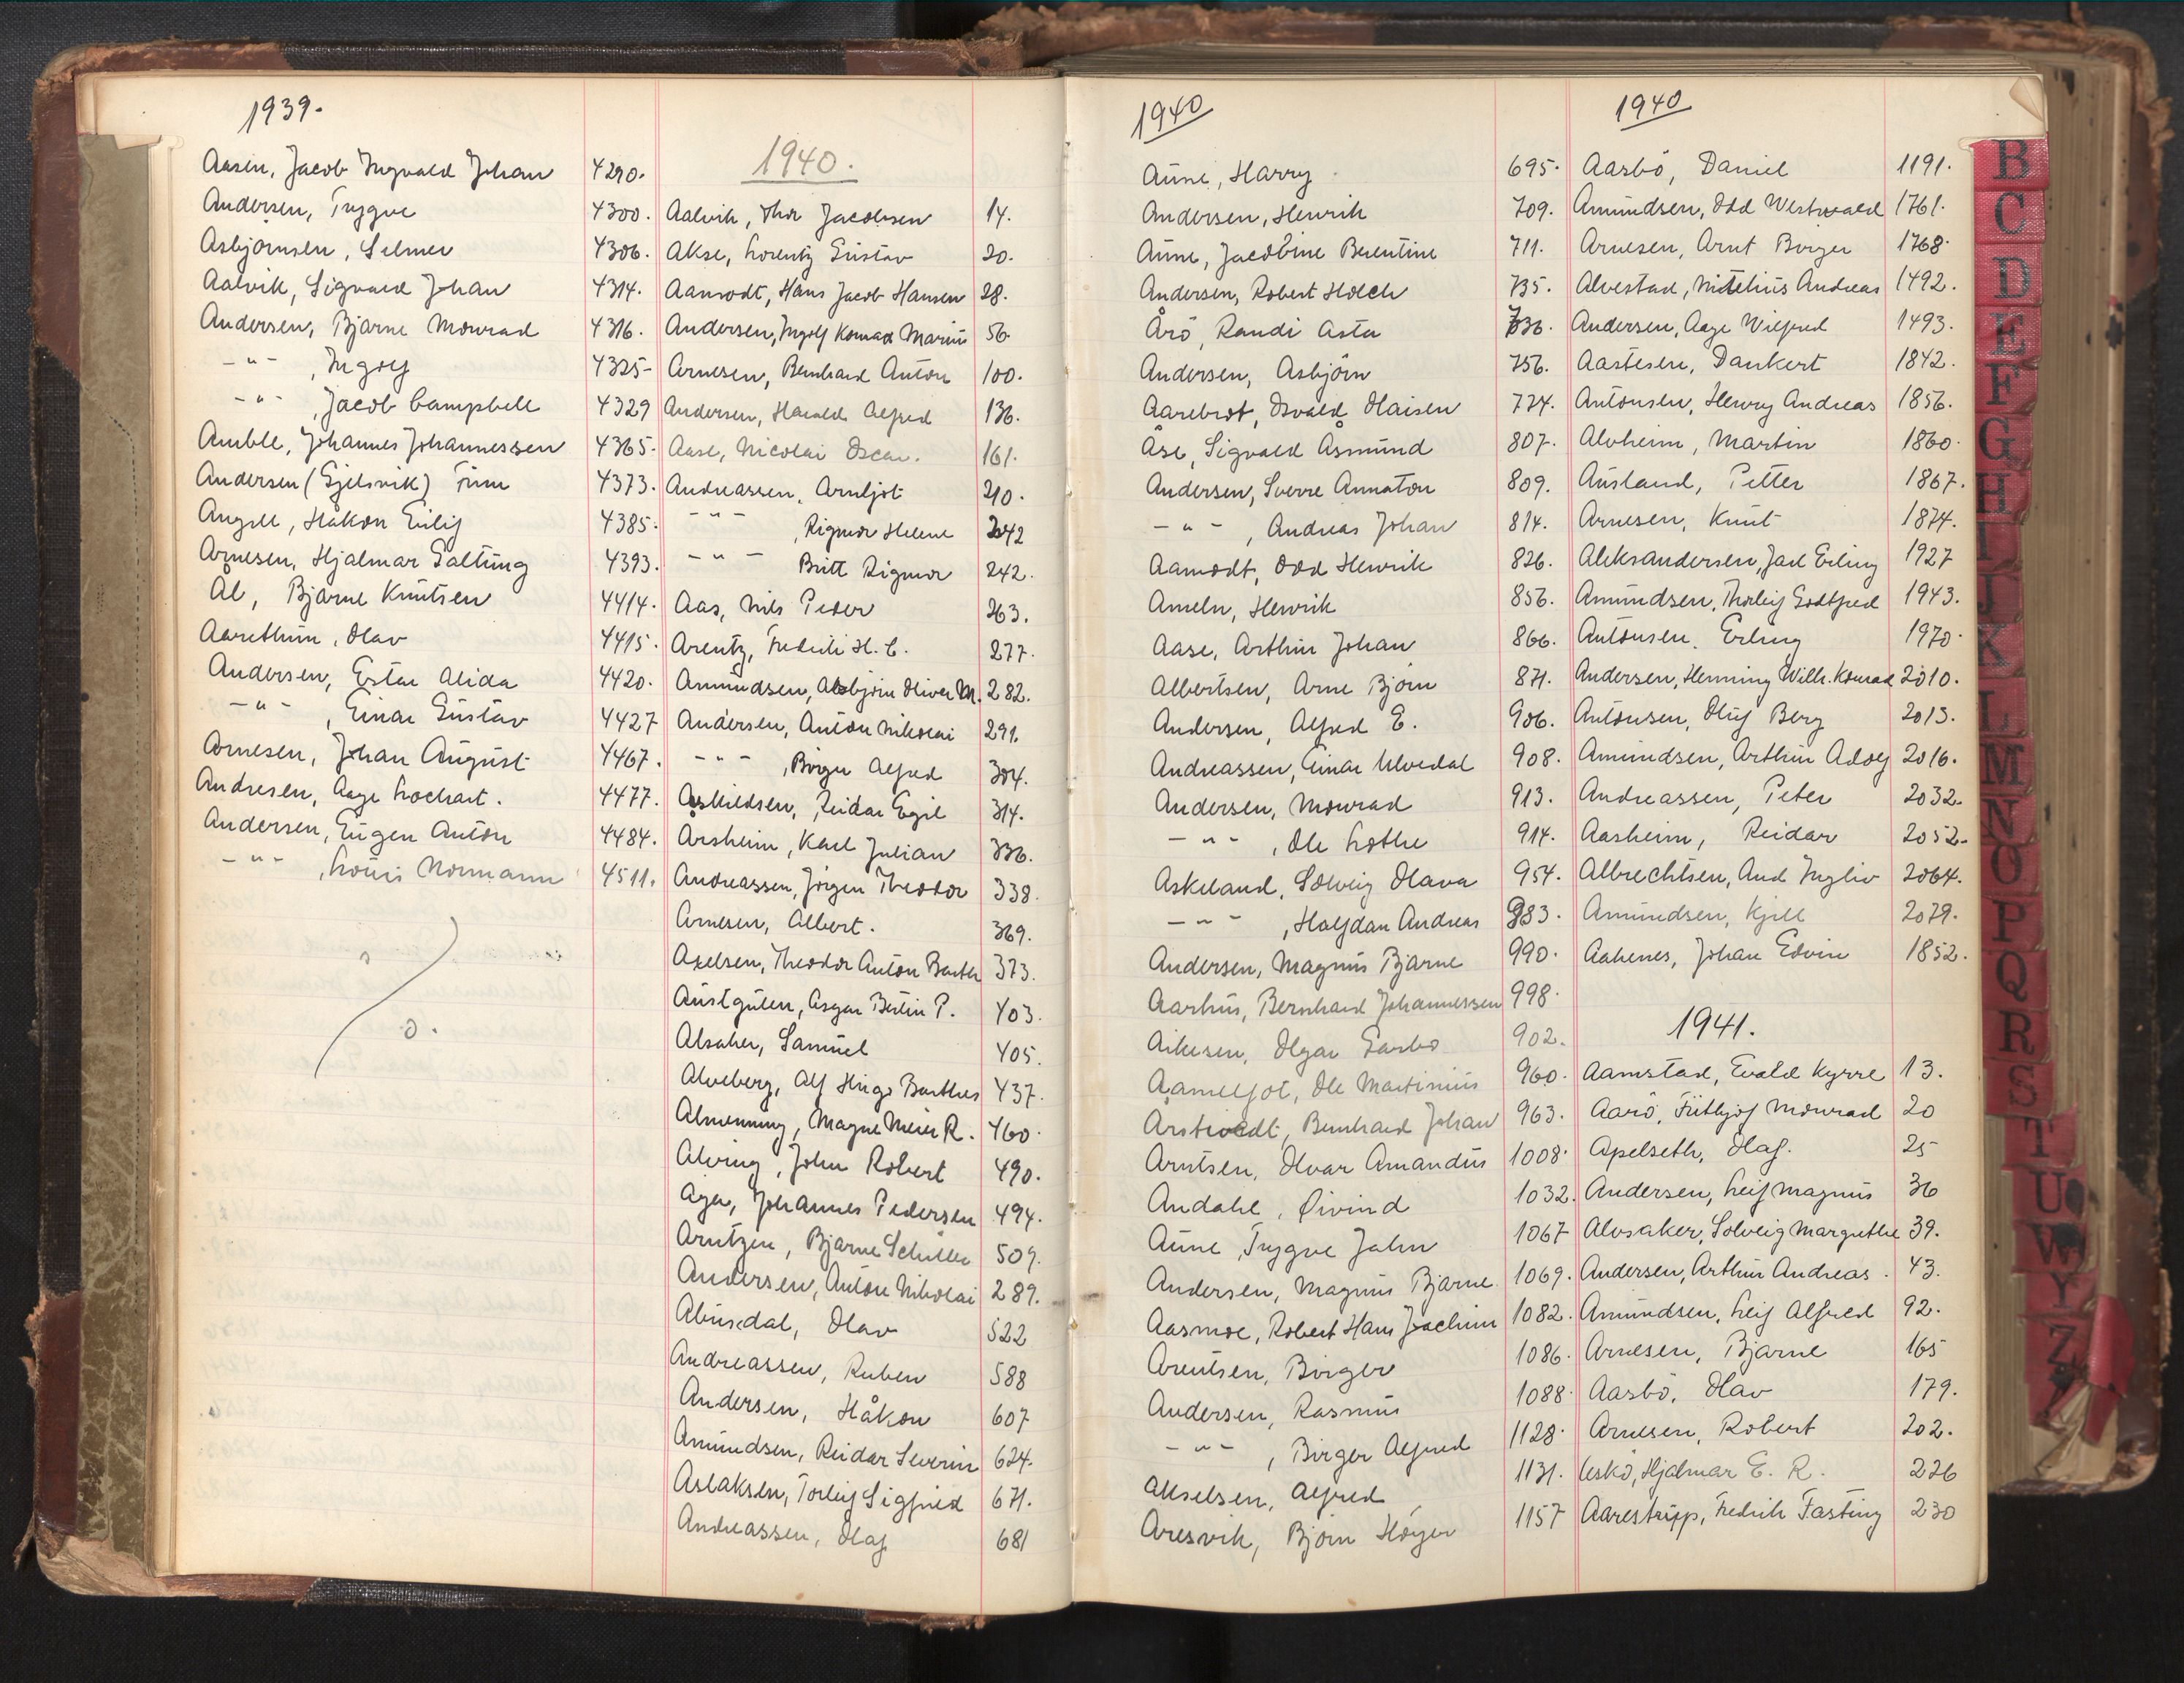 1939.
Aasen, Jacob Ingvald Johan 4290.
Andersen, Trygve 4300.
Asbjörnsen, Selmer 4306.
Aalvik, Sigvald Johan 4314.
Andersen, Bjarne Monrad 4316.
-"- , Ingolf 4325-
-"- , Jacob Campbell 4329
Amble, Johannes Johannessen 4365.
Andersen (Gjelsvik) Finn 4373.
Angell, Håkon Eilif 4385.
Arnesen, Hjalmar Galtung 4393.
Ål, Bjarne Knutsen 4414.
Aarethun, Olav 4415.
Andersen, Ester Alida 4420.
-"- , Einar Gustav 4427
Arnesen, Johan August 4467.
Andresen, Aage Lockert. 4477.
Andersen, Eugen Anton 4484.
-"- , Louis Normann 4511.
1940.
Aalvik, Thor Jacobsen 14.
Akse, Lorentz Gustav 20.
Aamodt, Hans Jacob Hansen 28.
Andersen, Ingolf Konrad Marius 56
Arnesen, Bernhard Anton 100.
Andersen, Harald Alfred 136.
Aase, Nicolai Oscar. 161.
Andreassen, Arnljot 210.
-"- , Rigmor Helene 242
-"- Britt Rigmor 242.
Aas, Nils Peder 263.
Arentz, Fredrik H. C. 277.
Amundsen, Asbjörn Oliver M. 282.
Andersen, Anton Nikolai 291.
-"- , Birger Alfred 304.
Askildsen, Reidar Egil 314.
Årsheim, Karl Julian 336.
Andreassen, Jörgen Theodor 338.
Arnesen, Albert. 369.
Axelsen, Theodor Anton Barth 373.
Austgulen, Asgar Bertin P. 403.
Alsaker, Samuel 405.
Alveberg, Alf Hugo Barthes 437.
Almenning, Magne Meier R. 460.
Alving, John Robert 490.
Aga, Johannes Pedersen 494.
Arntzen, Bjarne Schiller 509.
Andersen, Anton Nikolai 289.
Abusdal, Olav 522
Andreassen, Ruben 588
Andersen, Håkon 607
Amundsen, Reidar Severin 624.
Aslaksen, Torleif Sigfried 671.
Andreassen, Olaf 681
1940
Aune, Harry 695.
Andersen, Henrik 709.
Aune, Jacobine Berentine 711.
Andersen, Robert Holck 735.
Årö, Randi Asta 736.
Andersen, Asbjörn 756.
Aarebrot, Osvald Olaisen 774.
Åse, Sigvald Åsmund 807.
Andersen, Sverre Annaton 809.
-"- , Andreas Johan 814.
Aamodt, Odd Henrik 826.
Ameln, Henrik 856.
Aase, Arthur Johan 866.
Albertsen, Arne Björn 871.
Andersen, Alfred E. 906.
Andreassen, Einar Ulvedal 908.
Andersen, Monrad 913.
-"- , Ole Lothe 914.
Askeland, Solveig Olava 954.
-"- , Halfdan Andreas 983.
Andersen, Magnus Bjarne 990.
Aarhus, Bernhard Johannessen 998.
Aikesen, Olgar Garbo 902.
Aameljot, Ole Martinius 960.
Årstvedt, Bernhard Johan 963.
Arntsen, Olvar Amandus 1008.
Andahl, Øivind 1032.
Aune, Trygve John 1067
Andersen, Magnus Bjarne 1069.
Aasmoe, Robert Hans Joachim 1082.
Arentsen, Birger 1086.
Andersen, Rasmus 1088.
-"- , Birger Alfred 1128.
Akselsen, Alfred 1131.
Aresvik, Björn Höyer 1157
1940
Aasbö, Daniel 1191.
Amundsen, Odd Westwald 1761.
Arnesen, Arnt Birger 1768.
Alvestad, Nitelius Andreas 1492.
Andersen, Aage Wilfred 1493.
Aastesen, Dankert 1842.
Antonsen, Henry Andreas 1856.
Alvheim, Martin 1860.
Ausland, Petter 1867.
Arnesen, Knut 1874.
Aleksandersen, Jarl Erling 1927
Amundsen, Thorleif Godtfred 1943.
Antonsen, Erling 1970.
Andersen, Henning Wilh. Konrad 2010.
Antonsen, Oluf Berg 2013.
Amundsen, Arthur Adolf 2016.
Andreassen, Peter 2032.
Aasheim, Reidar 2052.
Albrechtsen, Aud Ingliv 2064.
Amundsen, Kjell 2079.
Aakenes, Johan Edvin 1852.
1941.
Aamstad, Evald Kyrre 13.
Aarö, Fritjof Monrad 20
Apelseth, Olaf. 25
Andersen, Leif Magnus 36
Alvsaker, Solveig Margrethe 39.
Andersen, Arthur Andreas. 43.
Amundsen, Leif Alfred 92.
Arnesen, Bjarne 165
Aasbö, Olav 179.
Arnesen, Robert 202.
Askö, Hjalmar E. R. 226
Aarestrupp, Fredrik Fasting 230
B
C
D
E
F
G
H
I
J
K
L
M
N
O
P
Q
R
S
T
U
W
Y
Z